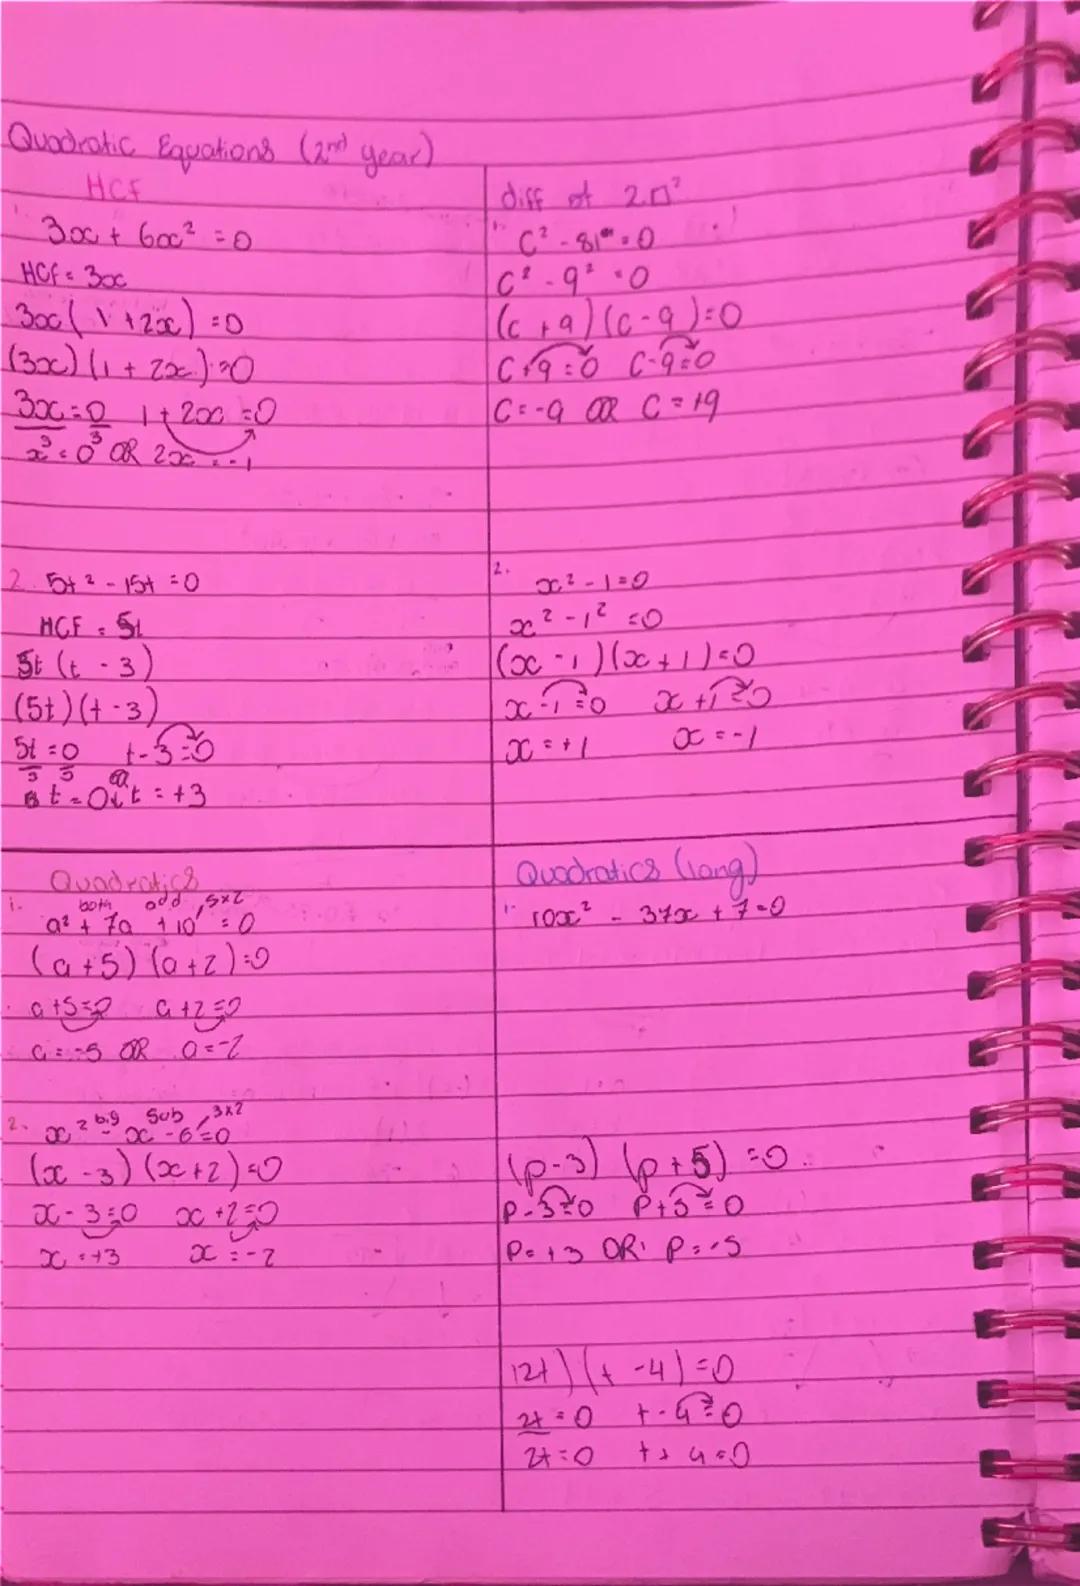 Quadratic Equations (2nd year)
HCF
1.
3x + 6x² = 0
HCF = 3x
3x( 1 + 2x) = 0
(3x) (1 + 2x) = 0
3x = 0 1 + 2x = 0
3 3
x = 0 OR 2x = -1
diff of 2 □²
1.
C² - 81 = 0
C² - 9² = 0
(c + 9) (c - 9) = 0
C + 9 = 0 C - 9 = 0
C = -9 OR C = +9
2. 5t² - 15t = 0
HCF = 5t
5t (t - 3)
(5t) (t - 3)
5t = 0 t - 3 = 0
5 5
t = 0 OR t = +3
2.
x² - 1 = 0
x² - 1² = 0
(x - 1) (x + 1) = 0
x - 1 = 0 x + 1 = 0
x = +1 x = -1
Quadratics
both add 5x2
1. a² + 7a + 10 = 0
(a + 5) (a + 2) = 0
a + 5 = 0 a + 2 = 0
a = -5 OR a = -2
big Sub 3x2
2. x² - x - 6 = 0
(x - 3) (x + 2) = 0
x - 3 = 0 x + 2 = 0
x = +3 x = -2
Quadratics (long)
1. 10x² - 37x + 7 = 0
(p - 3) (p + 5) = 0
P - 3 = 0 P + 5 = 0
P = +3 OR P = -5
(2t) (t - 4) = 0
2t = 0 t - 4 = 0
2t = 0 t + 4 = 0